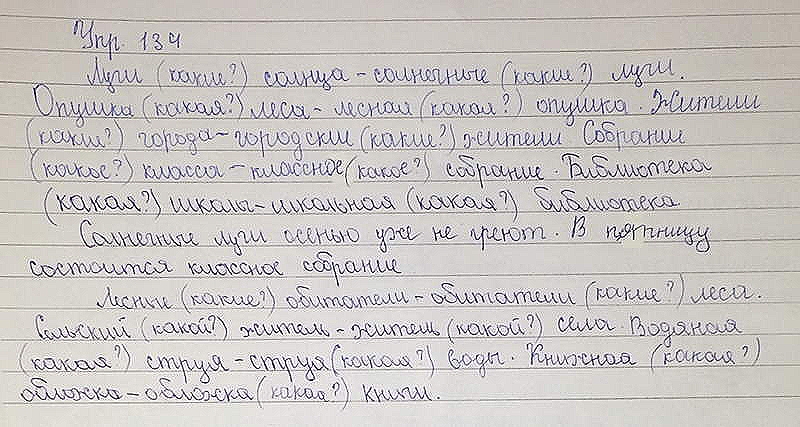 Упр. 134
Луги (какие?) солнца – солнечные (какие?) луги.
Опушка (какая?) леса – лесная (какая?) опушка. Жители
(какие?) города – городские (какие?) жители Собрание
(какое?) класса – классное (какое?) собрание. Библиотека
(какая?) школы – школьная (какая?) библиотека
Солнечные луги осенью уже не греют. В пятницу
состоится классное собрание
Лесные (какие?) обитатели – обитатели (какие?) леса.
Сельский (какой?) житель – житель (какой?) села. Водяная
(какая?) струя – струя (какая?) воды. Книжная (какая?)
обложка – обложка (какая?) книги.